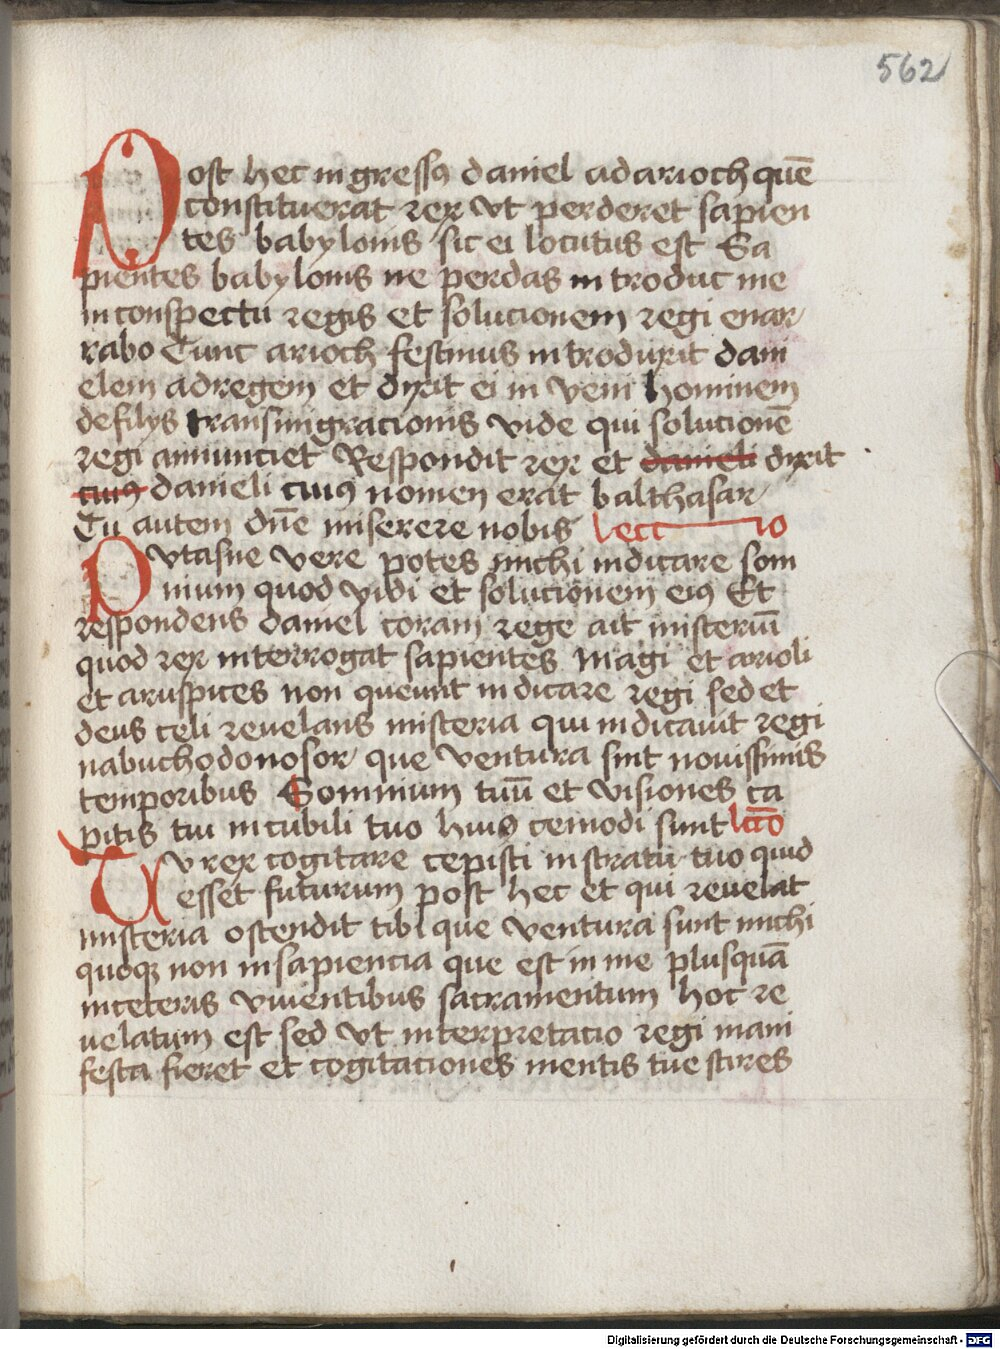 562
Post hec ingressꝰ daniel ad arioch quē
constituerat rex vt perderet sapien
tes babylonis sic ei locutus est Sa
pientes babylonis ne perdas introduc me
in conspectu regis et solucionem regi enar
rabo Tunc arioch festinus introduxit dani
elem ad regem et dixit ei in veni hominem
de filijs transmigracionis vide qui solucionē
regi annunciet Respondit rex et danieli dixit
cuiꝰ danieli cuiꝰ nomen erat balthasar
Tu autem dn̄e miserere nobis lectio
Putasne vere potes michi indicare som
nium quod vidi et solucionem eiꝰ Et
respondens daniel coram rege ait misteriū
quod rex interrogat sapientes magi et arioli
et aruspices non queunt indicare regi sed et
deus celi reuelans misteria qui indicauit regi
nabuchodonosor que ventura sint nouissimis
temporibus Somnium tuū et visiones ca
pitis tui in cubili tuo huiꝰ cemodi sunt lc̄o
Tu rex cogitare cepisti in stratu tuo quid
esset futurum post hec et qui reuelat
misteria ostendit tibi que ventura sunt michi
quoqꝫ non in sapiencia que est in me plusquā
in ceteris viuentibus sacramentum hoc re
uelatum est sed vt interpretacio regi mani
festa fieret et cogitaciones mentis tue scires
Digitalisierung gefördert durch die Deutsche Forschungsgemeinschaft - DFG